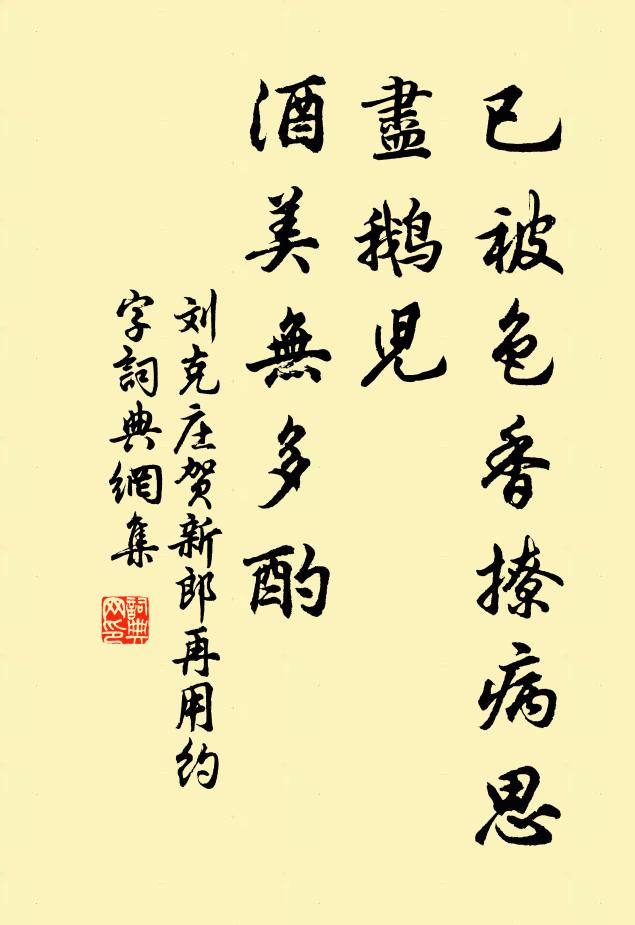 已被色香撩病思
盡鵝児
酒美無多酌
刘克庄贺新郎再用约
字詞典網集
詞典
网印